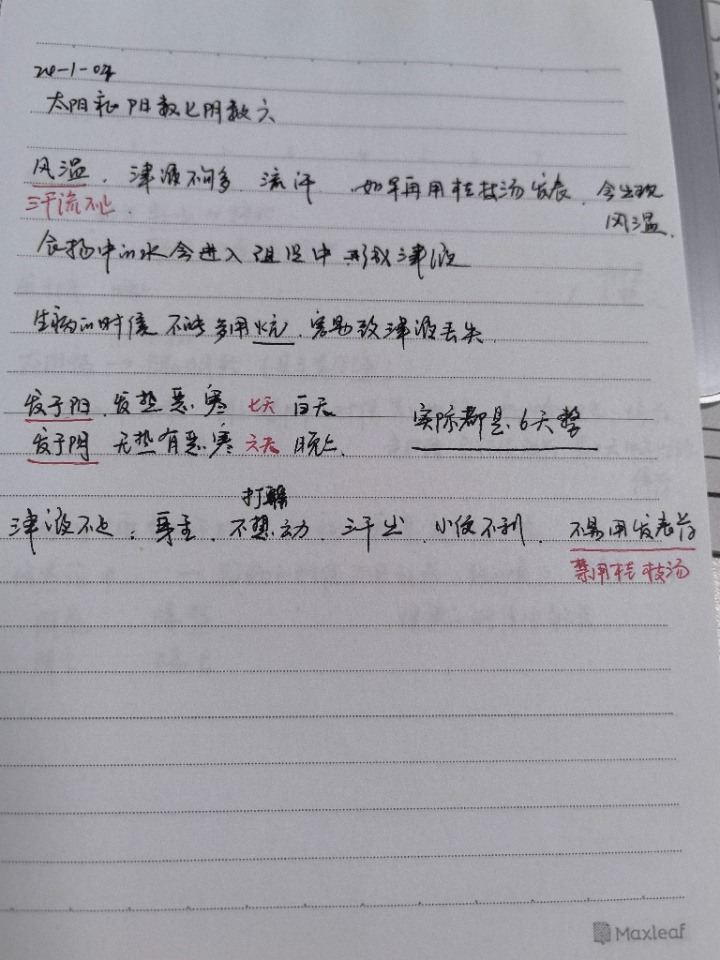 24-1-04
太阳病 阳数七阴数六
风温. 津液不够多, 流汗. 如果再用桂枝汤发表. 会出现风温.
汗流不止
食物中的水会进入 中 形成津液
生病的时候 不能多用 , 容易致津液丢失.
发于阳. 发热恶寒 七天 白天
发于阴 无热有恶寒 六天 晚上.
实际都是6天整
打鼾
津液不足: 身重, 不想动, 汗出, 小便不利. 不易用发表药
禁用桂枝汤
Maxleaf